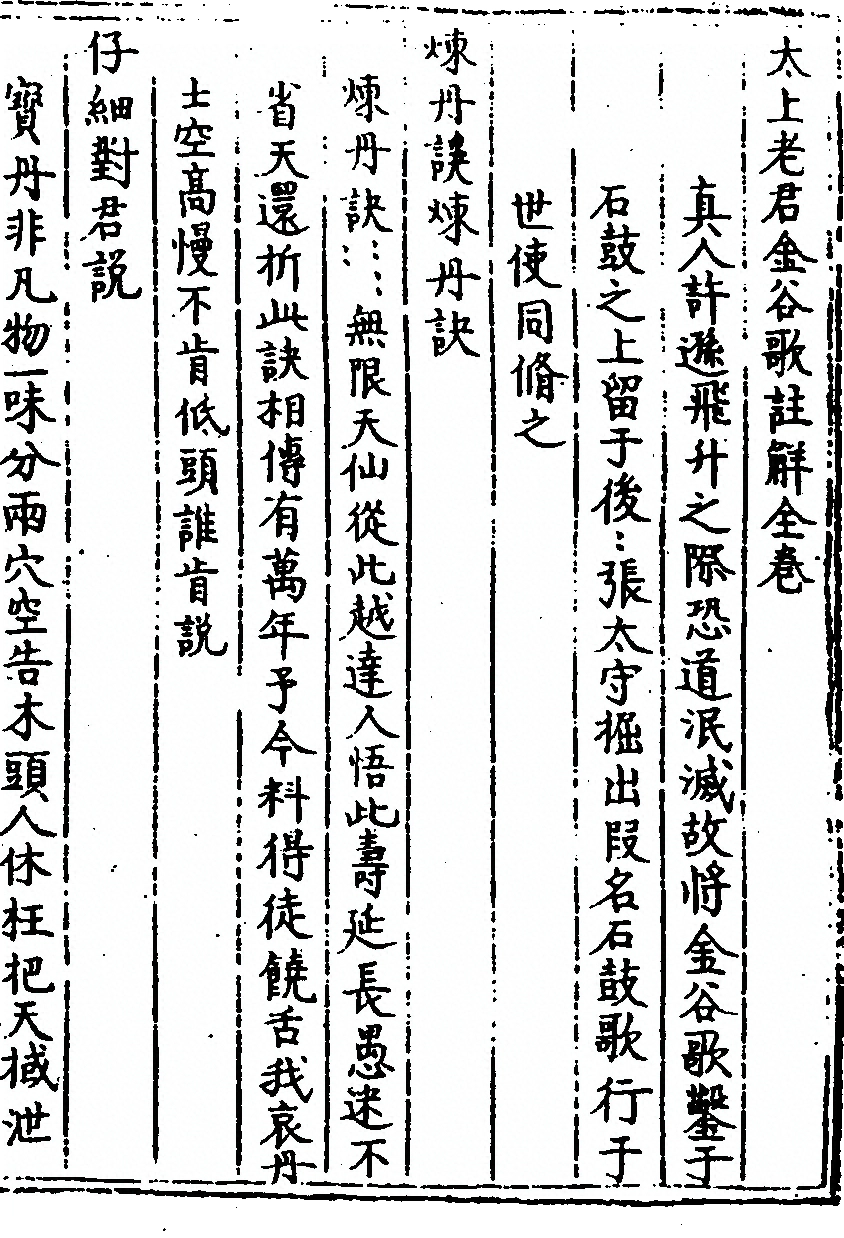 太上老君金谷歌註解全卷
真人許遜飛升之際恐道泯滅故將金谷歌鑿于
石鼓之上留于後：張太守掘出叚名石鼓歌行于
世使同脩之
煉丹談煉丹訣
煉丹訣：：：無限天仙從此越達人悟此壽延長愚迷不
省天還折此訣相傳有萬年予今料得徒饒舌我哀丹
士空高慢不肯低頭誰肯説
仔細對君説
寳丹非凡物一味分兩穴空告木頭人休枉把天楲泄